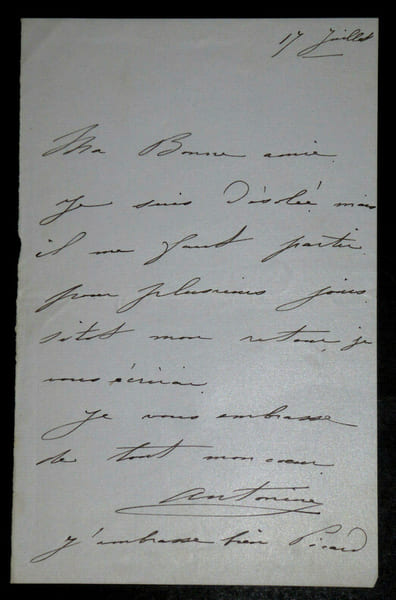 17 Juillet
Ma Bonne amie
Je suis Désolée mais
il me faut partir
pour plusieurs jours
sitot mon retour je
vous écrirai
Je vous embrasse
de tout mon coeur
Antonine
J'embrasse bien Picard